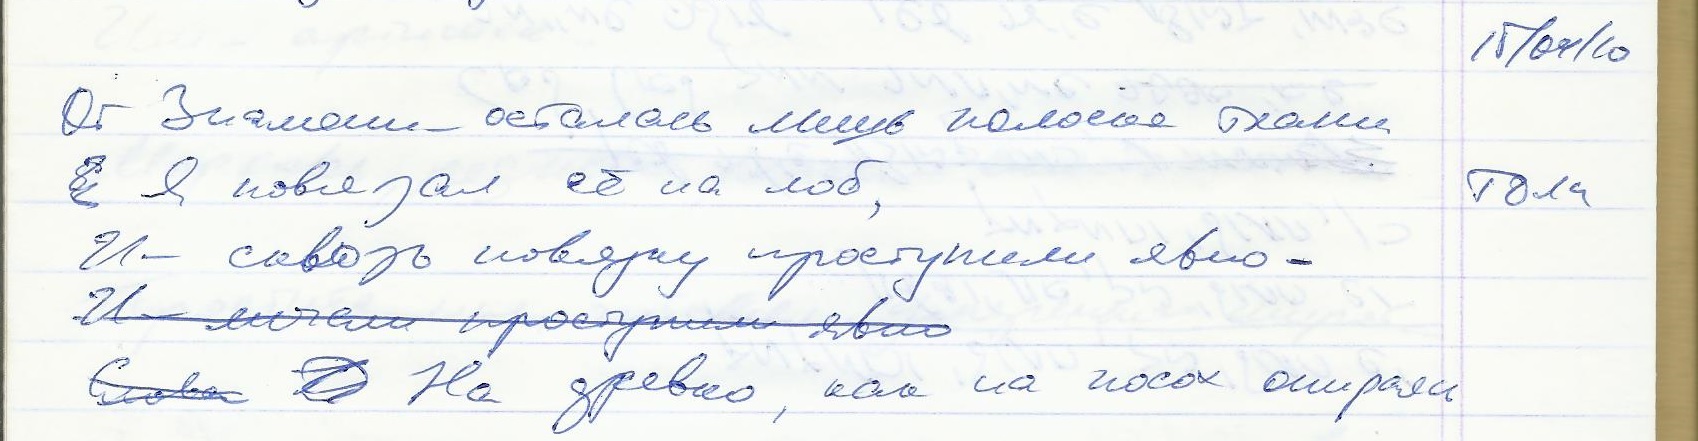 15/04/10
От Знамени осталась лишь полоска ткани
Я повязал её на лоб,
Толи
И – сквозь повязку проступили явно –
И – мечами проступили явно
Слова На древко, как на посох опираясь